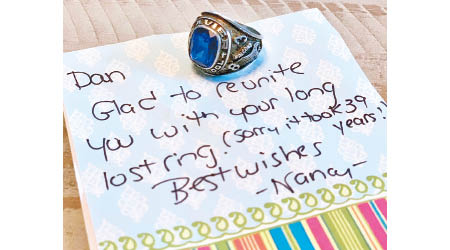 Dan
Glad to reunite
you with your long
lost ring! (Sorry it took 39
years!)
Best wishes
-Nancy-